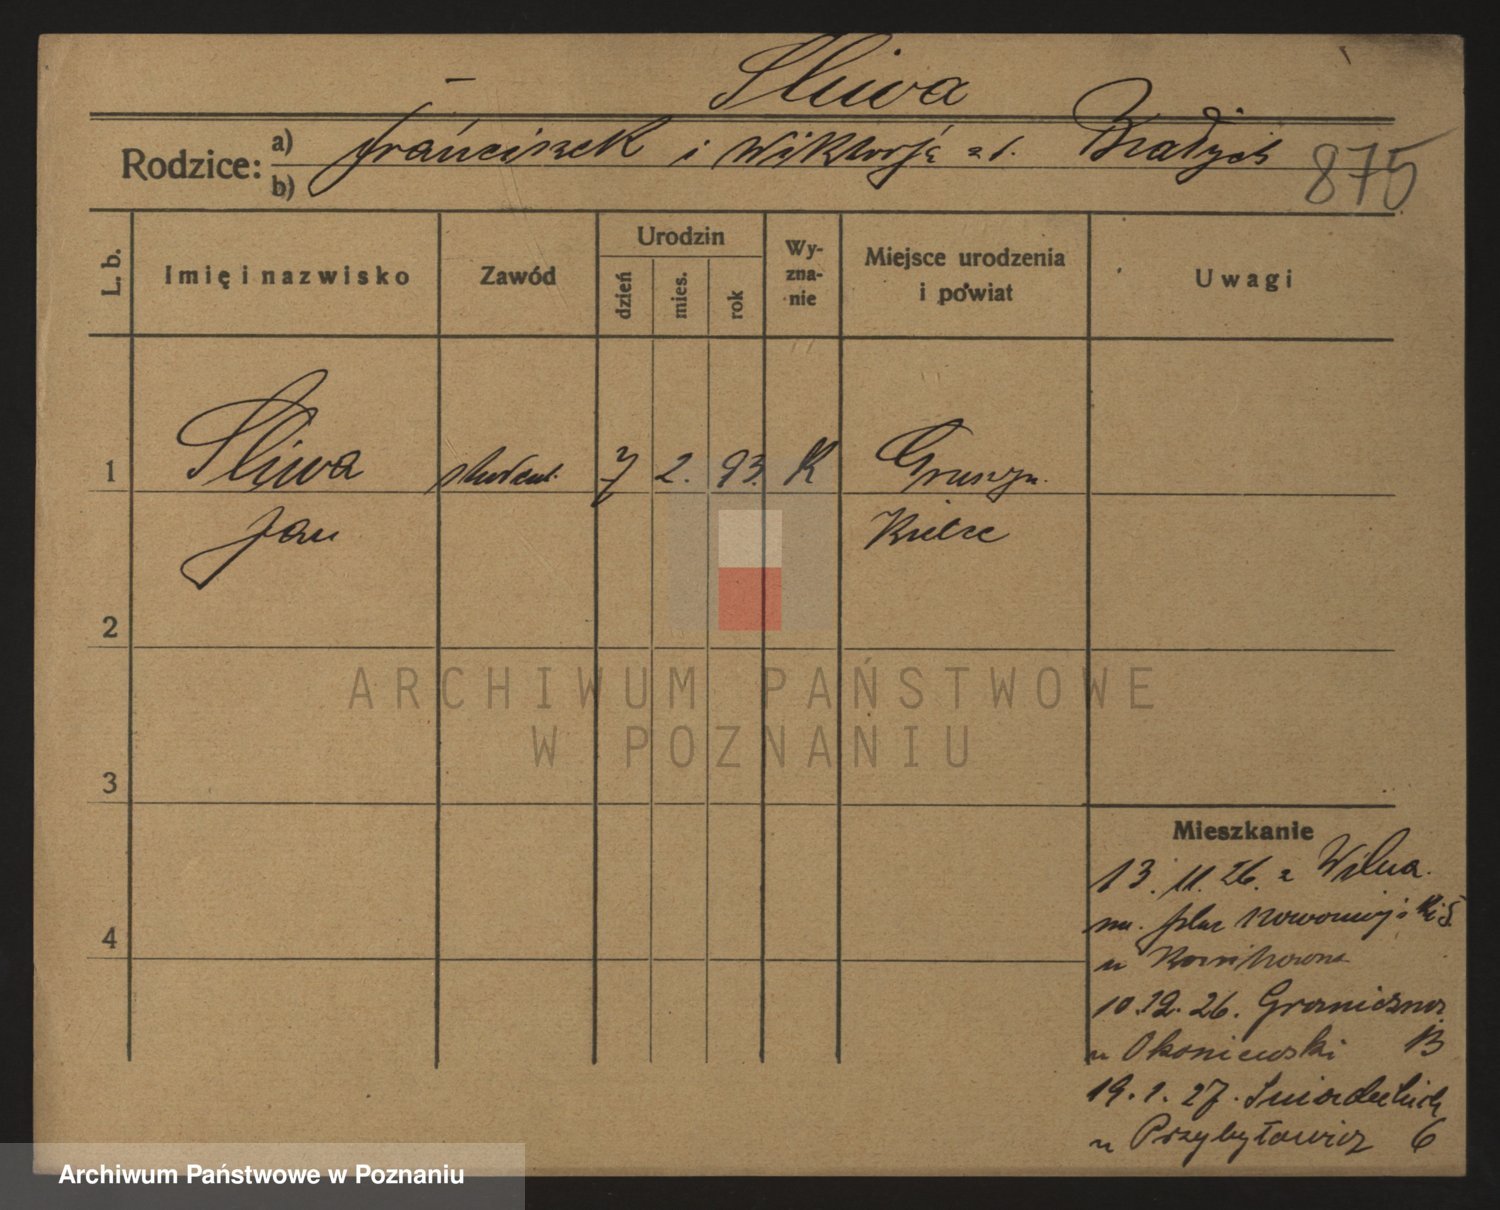 Śliwa
Rodzice: a) Franciszek i Wiktorja z d. Białych
b)
875
L. b. Imię i nazwisko Zawód Urodzin dzień mies. rok Wyznanie Miejsce urodzenia i powiat Uwagi
1 Śliwa student 7 2. 93. K
Jan Kielce
2
3
4
Mieszkanie
13. 11. 26. z Wilna.
na. plac Nowomiejski 5.
u
10. 12. 26. Graniczna
u Okoniewski 13
19. 1. 27. Śniadeckich
u Przybyłowicz 6
ARCHIWUM PAŃSTWOWE
W POZNANIU
Archiwum Państwowe w Poznaniu